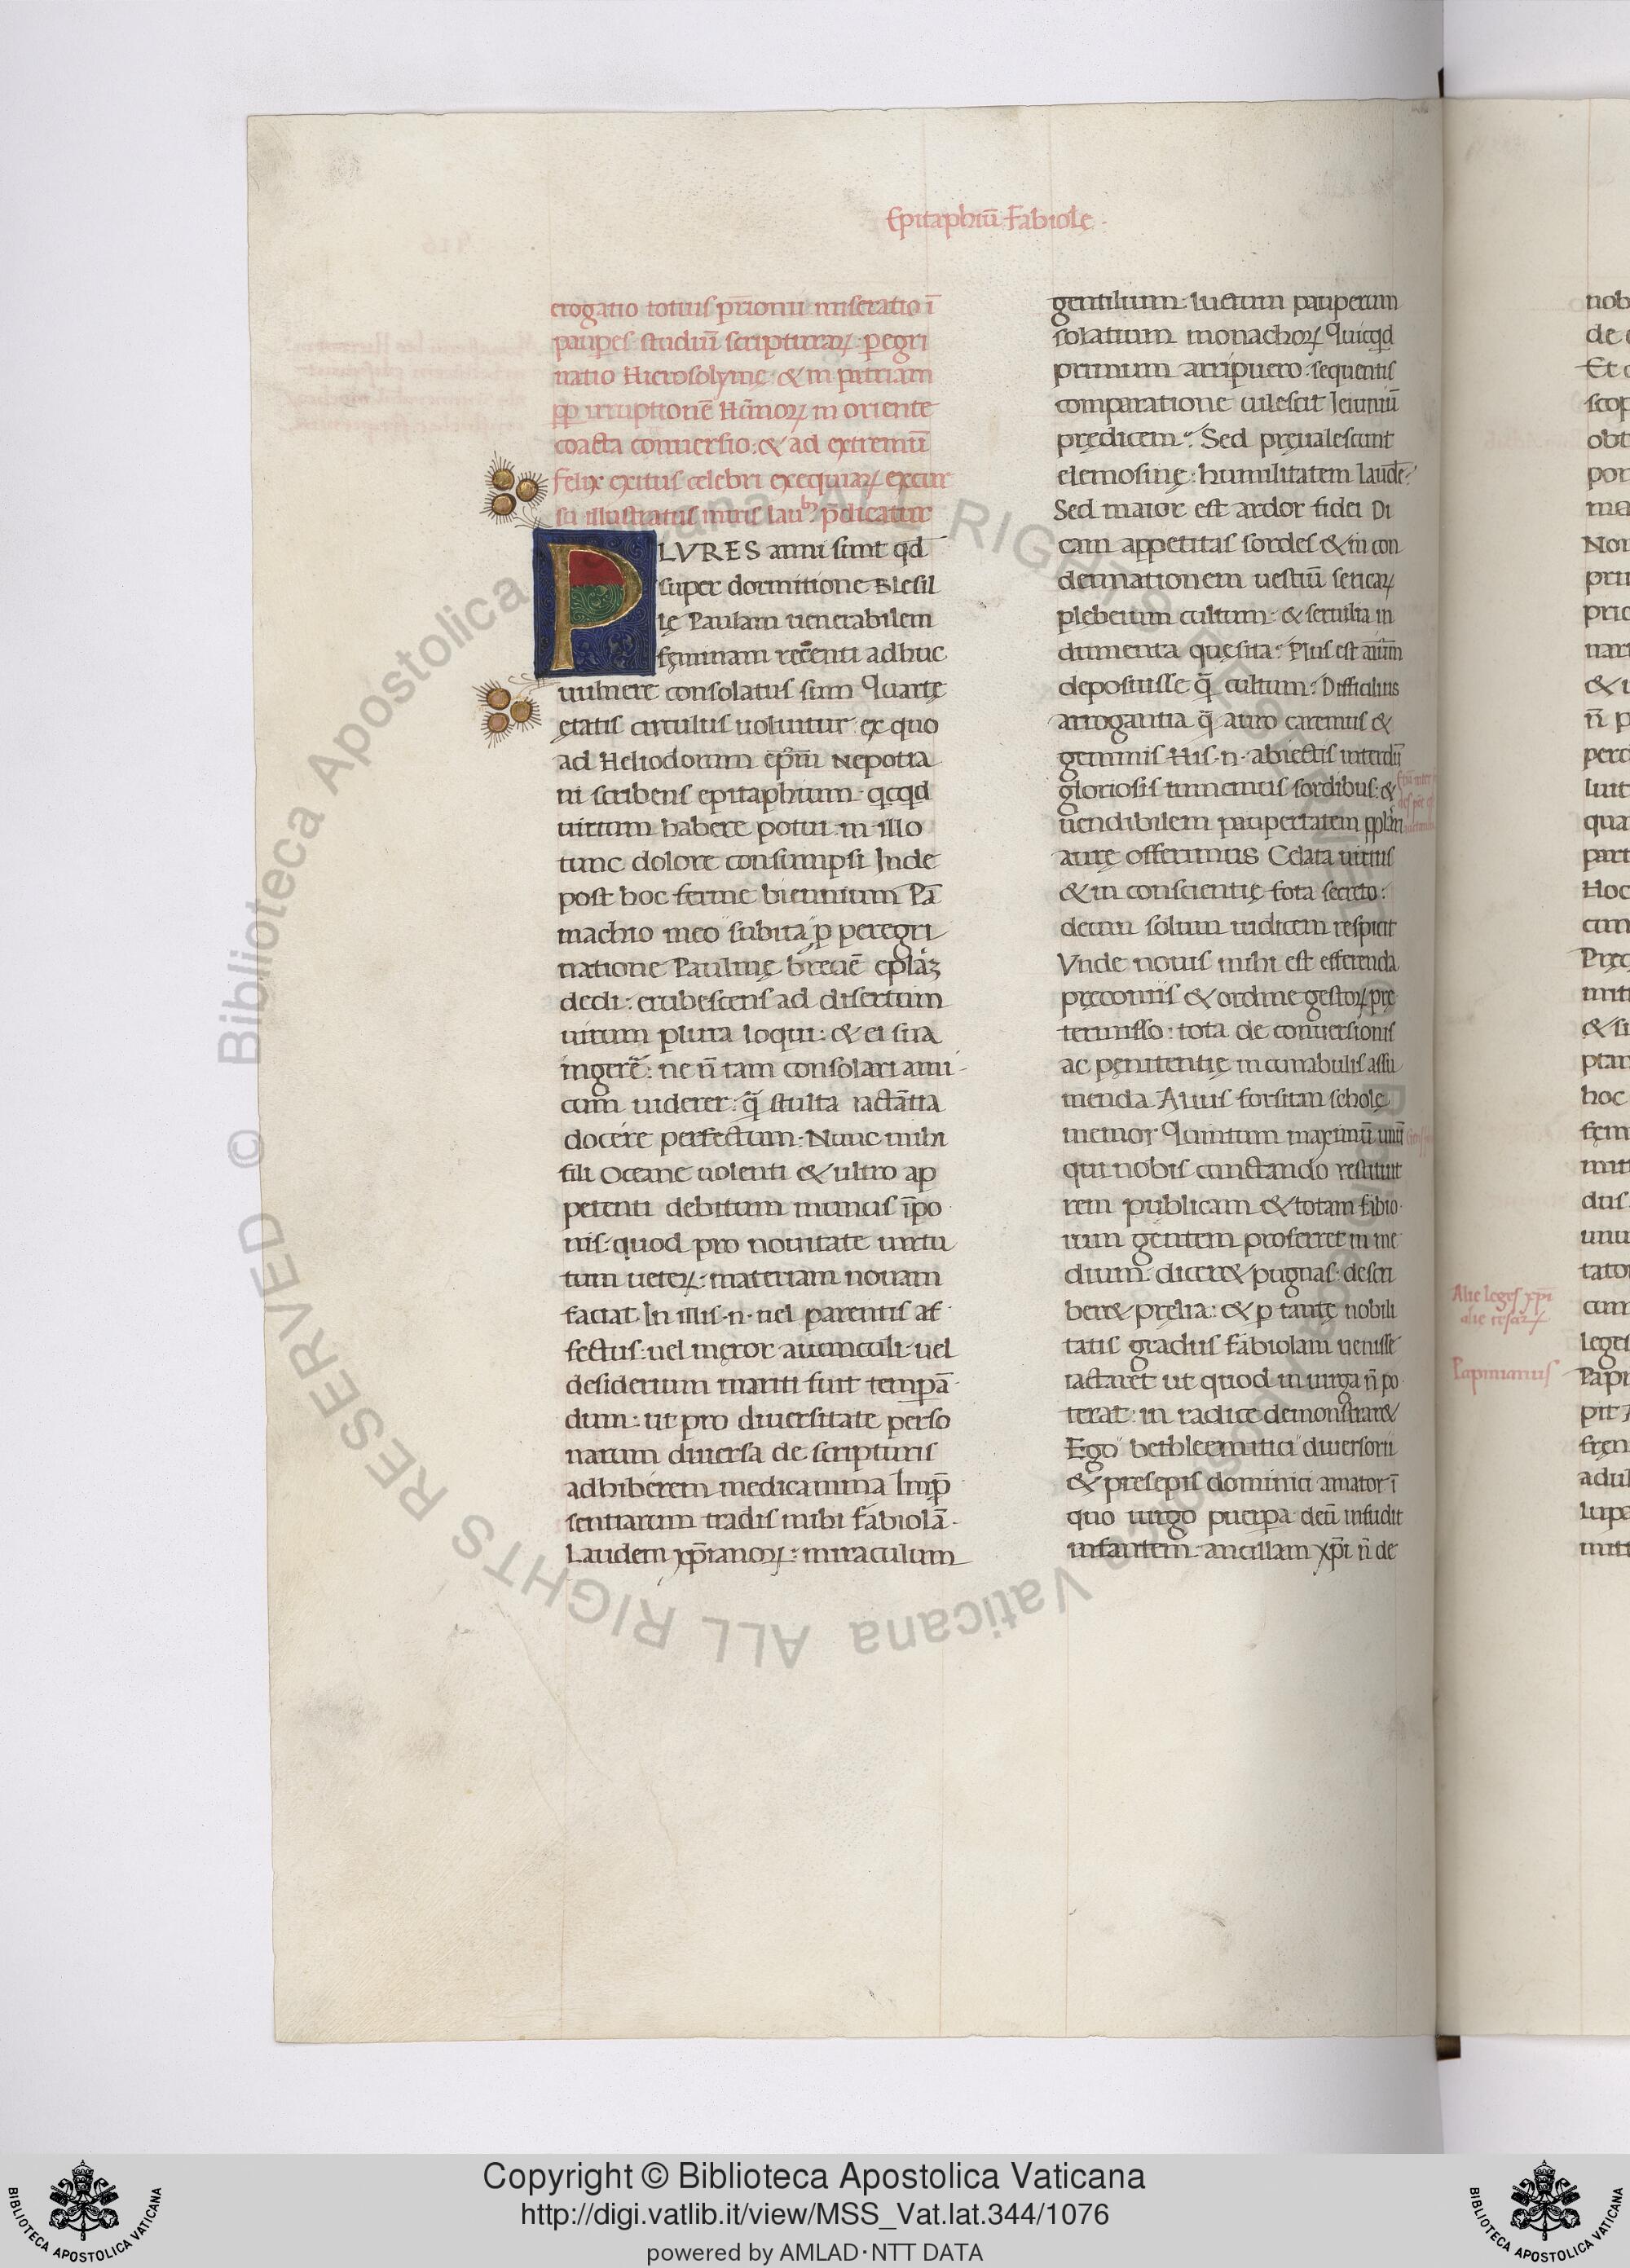 Epitaphiū Fabiole
erogatio totius pr̄ionii miseratio ī
paupes studiū scripturaꝝ ꝑegri
natio Hierosolyme & in patriam
pp̄ irruptionē Hūnoꝝ in oriente
coacta conuersio: & ad extremū
felix exitus celebri exequiaꝝ excur
su illustratus miris lauᵇꝫ p̄dicatur
PLVRES anni sunt qd̄
super dormitione Blesil
lę Paulam uenerabilem
fęminam recenti adhuc
uulnere consolatus sum Quartę
ętatis circulus uoluitur ex quo
ad Heliodorum ep̄m Nepotia
ni scribens epitaphium qcqd
uirium habere potui in illo
tunc dolore consumpsi Inde
post hoc ferme biennium Pā
machio meo subita p peregri
natione Paulinę breuē ep̄laʒ
dedi: erubescens ad disertum
uirum plura loqui: & ei sua
ingerē: ne n̄ tam consolari ami
cum uiderer: q̄ stulta iactātia
docere perfectum. Nunc mihi
fili Oceane uolenti & ultro ap
petenti debitum munus īpo
nis quod pro nouitate uirtu
tum ueteꝝ: materiam nouam
faciat In illis .n. uel parentis af
fectus: uel męror auunculi uel
desiderium mariti fuit tempā
dum: ut pro diuersitate perso
narum diuersa de scripturis
adhiberem medicamina Imp̄
sentiarum tradis mihi fabiolā
Laudem xp̄ianoꝝ: miraculum
gentilium: luctum pauperum
solatium monachoꝝ Quicqd
primum arripuero: sequentis
comparatione uilescit Ieiuniū
prędicem? Sed pręualescunt
elemosinę: humilitatem laudē?
Sed maior est ardor fidei Di
cam appetitas sordes & in con
demnationem uestiū sericaꝝ
plebeium cultum & seruilia in
dumenta quęsita? Plus est animū
deposuisse q̄ cultum: Difficilius
arrogantia q̄ auro caremus &
gemmis His .n. abiectis interdū
gloriosis tumemus sordibus: &
uendibilem paupertatem pplari
aurę offerimus Celata uirtus
& in conscientię fota secreto:
deum solum iudicem respicit
Vnde nouis mihi est efferenda
pręconiis & ordine gestoꝝ prę
termisso: tota de conuersionis
ac pęnitentię incunabulis assu
menda Alius forsitan scholę
memor Quintum maximū unū
qui nobis cunctando restituit
rem publicam & totam fabio
rum gentem proferret in me
dium diceret pugnas: descri
beret prelia: & p tantę nobili
tatis gradus fabiolam uenisse
iactaret ut quod in uirga n̄ po
terat: in radice demonstraret
Ego bethleemitici diuersorii
& presepis dominici amator ī
quo uirgo puerpa deū infudit
infantem ancillam xp̄i n̄ de
Alie leges xp̄i
Papinianus
Copyright © Biblioteca Apostolica Vaticana
http://digi.vatlib.it/view/MSS_Vat.lat.344/1076
powered by AMLAD·NTT DATA
BIBLIOTECA APOSTOLICA VATICANA
BIBLIOTECA APOSTOLICA VATICANA
© Biblioteca Apostolica Vaticana ALL RIGHTS RESERVED